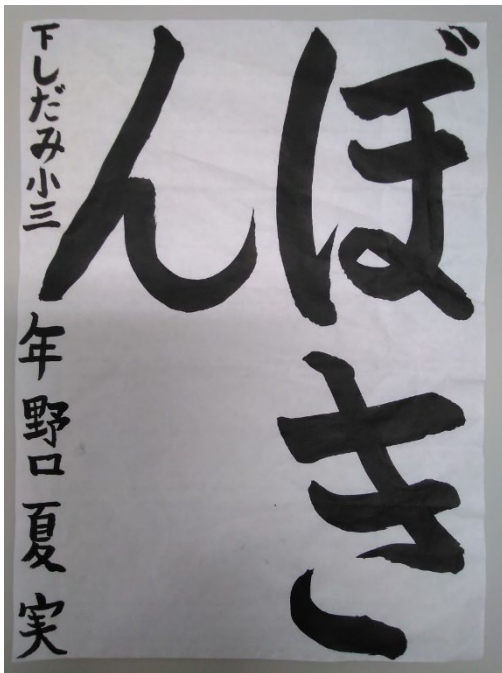 ぼき
ん
下しだみ小三年野口夏実